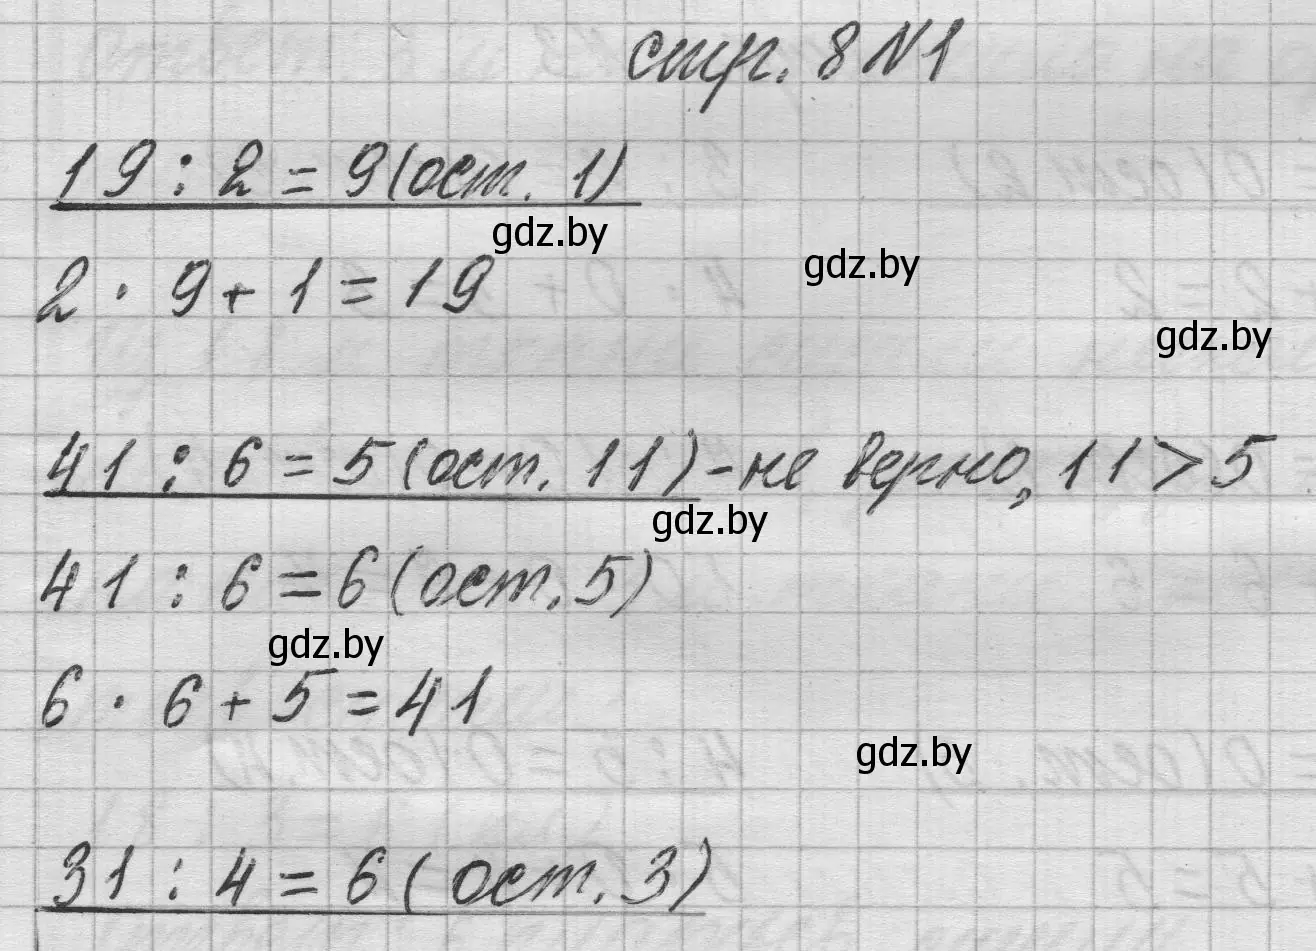 стр. 8 №1
19 : 2 = 9 (ост. 1)
gdz.by
gdz.by
2 · 9 + 1 = 19
gdz.by
41 : 6 = 5 (ост. 11) - не верно, 11 > 5
gdz.by
41 : 6 = 6 (ост. 5)
gdz.by
6 · 6 + 5 = 41
gdz.by
31 : 4 = 6 (ост. 3)